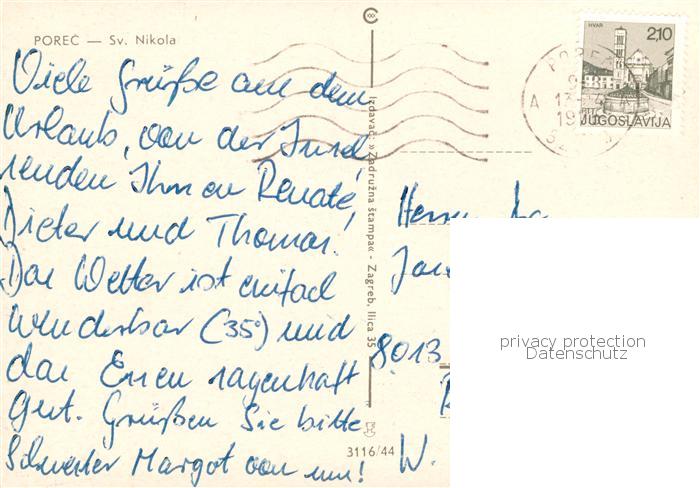 POREČ — Sv. Nikola
Viele Grüße aus dem
Urlaub, von der Insel
senden Ihnen Renate,
Dieter und Thomas!
Das Wetter ist einfach
wunderbar (35°) und
das Essen sagenhaft
gut. Grüßen Sie bitte
Schwester Margot von uns!
Izdavač: »Zadružna štampa« - Zagreb, Ilica 35
3116/44
HVAR
2,10
JUGOSLAVIJA
A
Herrn
8013
W.
privacy protection
Datenschutz